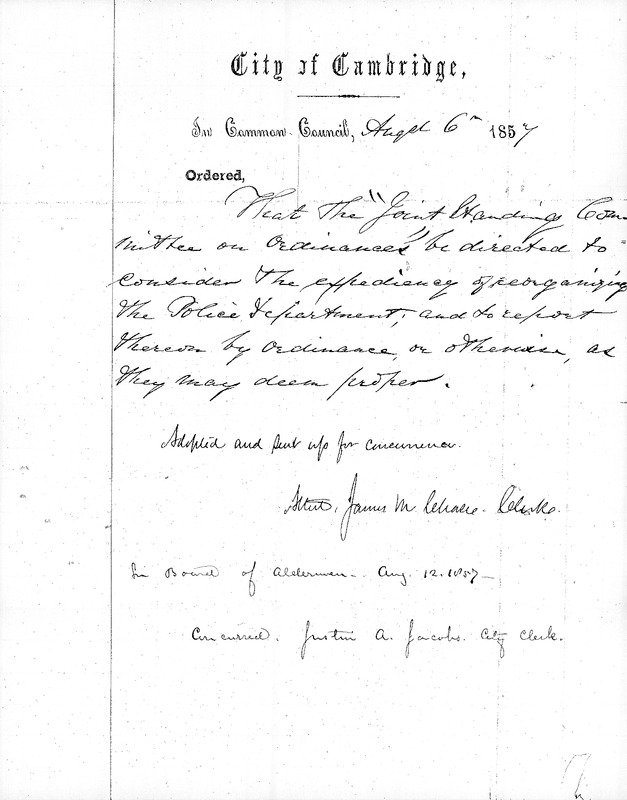 City of Cambridge,
In Common Council, Augst 6th 1857
Ordered,
That the "Joint Standing Com-
mittee on Ordinances" be directed to
consider the expediency of reorganizing
the Police Department, and to report
thereon by ordinance, or otherwise, as
they may deem proper.
Adopted and sent up for concurrence.
Attest, James M. Chase. Clerk.
In Board of Aldermen. Aug. 12. 1857
Concurred. Justin A. Jacobs. City Clerk.